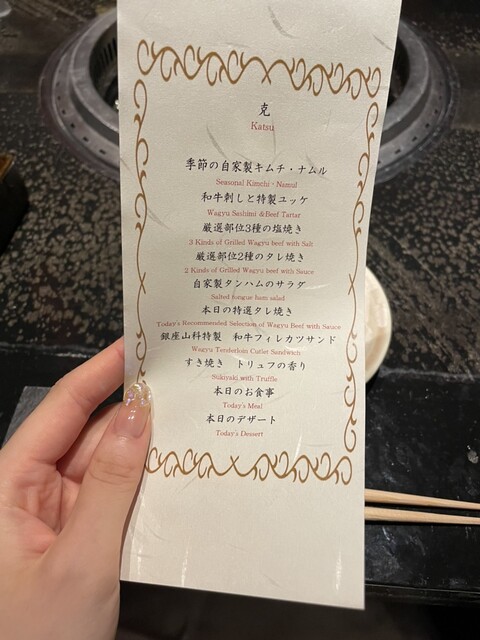 克
Katsu
季節の自家製キムチ・ナムル
Seasonal Kimchi・Namul
和牛刺しと特製ユッケ
Wagyu Sashimi &Beef Tartar
厳選部位3種の塩焼き
3 Kinds of Grilled Wagyu beef with Salt
厳選部位2種のタレ焼き
2 Kinds of Grilled Wagyu beef with Sauce
自家製タンハムのサラダ
Salted tongue ham salad
本日の特選タレ焼き
Today's Recommended Selection of Wagyu Beef with Sauce
銀座山科特製 和牛フィレカツサンド
Wagyu Tenderloin Cutlet Sandwich
すき焼き トリュフの香り
Sukiyaki with Truffle
本日のお食事
Today's Meal
本日のデザート
Today's Dessert